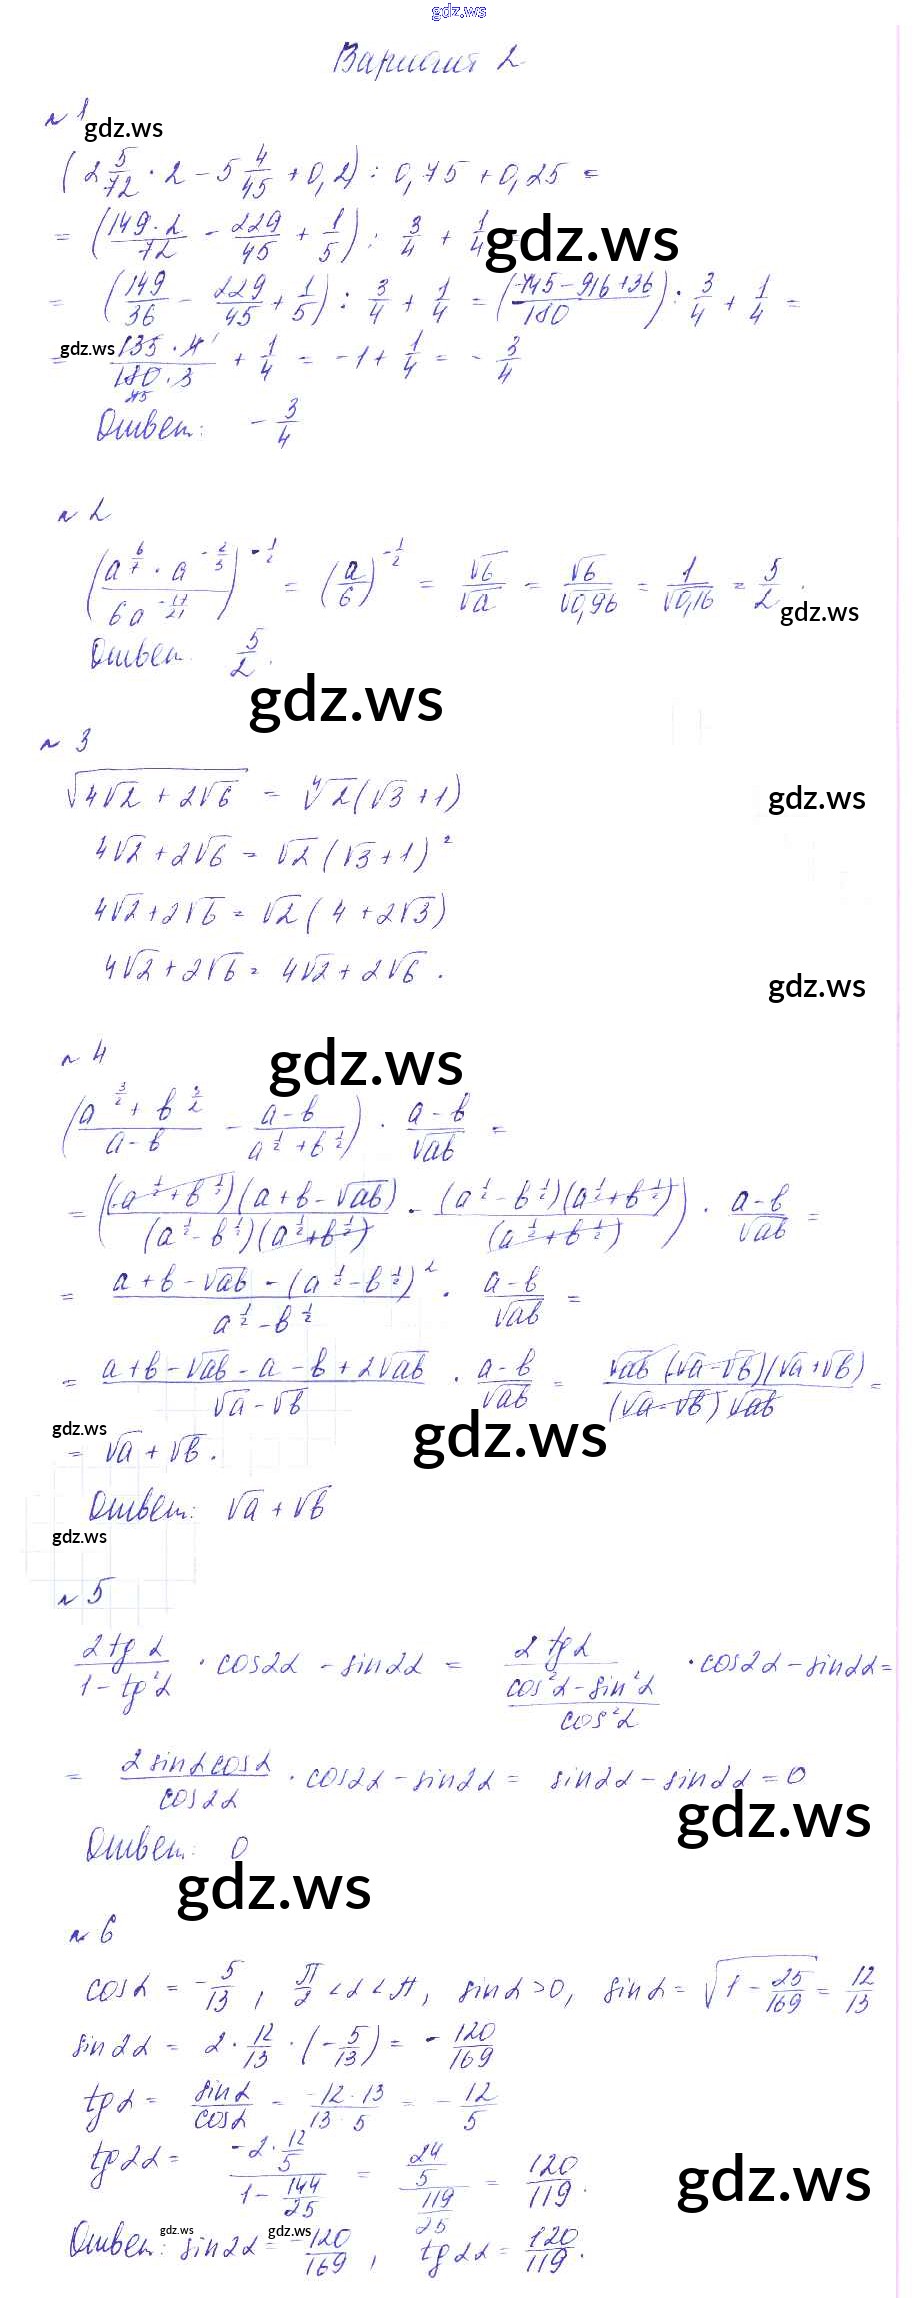 gdz.ws
Вариант 2
№ 1
gdz.ws
(2 5/72 · 2 − 5 4/45 + 0,2) : 0,75 + 0,25 =
= (149·2/72 − 229/45 + 1/5) : 3/4 + 1/4
gdz.ws
= (149/36 − 229/45 + 1/5) : 3/4 + 1/4 = (745 − 916 + 36/180) : 3/4 + 1/4 =
gdz.ws
= 135 · 4/180 · 3 + 1/4 = −1 + 1/4 = − 3/4
Ответ: − 3/4
№ 2
(a^(6/7) · a^(−2/3) / 6a^(−17/21))^(−1/2) = (a/6)^(−1/2) = √6/√a = √6/√0,96 = 1/√0,16 = 5/2.
gdz.ws
Ответ. 5/2.
gdz.ws
№ 3
√(4√2 + 2√6) = ⁴√2 (√3 + 1)
gdz.ws
4√2 + 2√6 = √2 (√3 + 1)²
4√2 + 2√6 = √2 (4 + 2√3)
4√2 + 2√6 = 4√2 + 2√6.
gdz.ws
№ 4
gdz.ws
(a^(3/2) + b^(3/2) / a − b − a − b / a^(1/2) + b^(1/2)) · a − b/√ab =
= ((a^(1/2) + b^(1/2))(a + b − √ab) / (a^(1/2) − b^(1/2))(a^(1/2) + b^(1/2)) − (a^(1/2) − b^(1/2))(a^(1/2) + b^(1/2)) / (a^(1/2) + b^(1/2))) · a − b/√ab =
= a + b − √ab − (a^(1/2) − b^(1/2))² / a^(1/2) − b^(1/2) · a − b/√ab =
= a + b − √ab − a − b + 2√ab / √a − √b · a − b/√ab = √ab (√a − √b)(√a + √b) / (√a − √b) √ab =
gdz.ws
gdz.ws
= √a + √b.
Ответ: √a + √b
gdz.ws
№ 5
2 tg α / 1 − tg²α · cos2α − sin2α = 2 tg α / (cos²α − sin²α / cos²α) · cos2α − sin2α =
= 2 sinα cosα / cos2α · cos2α − sin2α = sin2α − sin2α = 0
gdz.ws
Ответ: 0
gdz.ws
№ 6
cosα = − 5/13, π/2 < α < π, sinα > 0, sinα = √(1 − 25/169) = 12/13
sin2α = 2 · 12/13 · (− 5/13) = − 120/169
tgα = sinα/cosα = −12 · 13/13 · 5 = − 12/5
tg2α = −2 · 12/5 / 1 − 144/25 = 24/5 / 119/25 = 120/119.
gdz.ws
gdz.ws
gdz.ws
Ответ: sin2α = −120/169, tg2α = 120/119.